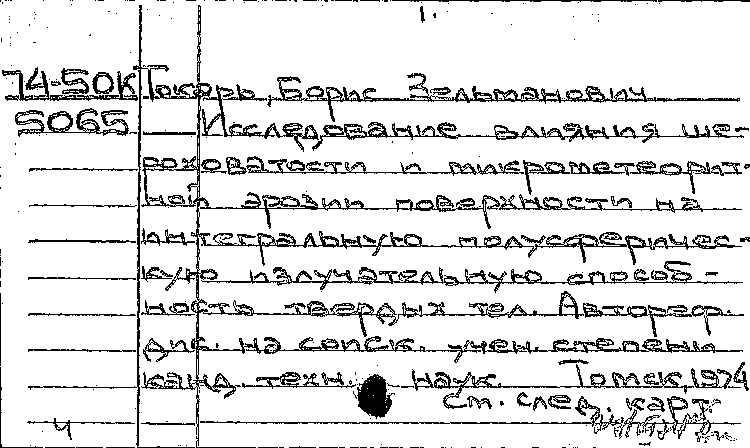 1.
74-50К Токарь, Борис Зельманович
5065 Исследование влияния ше-
роховатости и микрометеорит-
ной эрозии поверхности на
интегральную полусферичес-
кую излучательную способ-
ность твердых тел. Автореф.
дис. на соиск. учен. степени
канд. техн. наук. Томск, 1974
См. след. карт
4